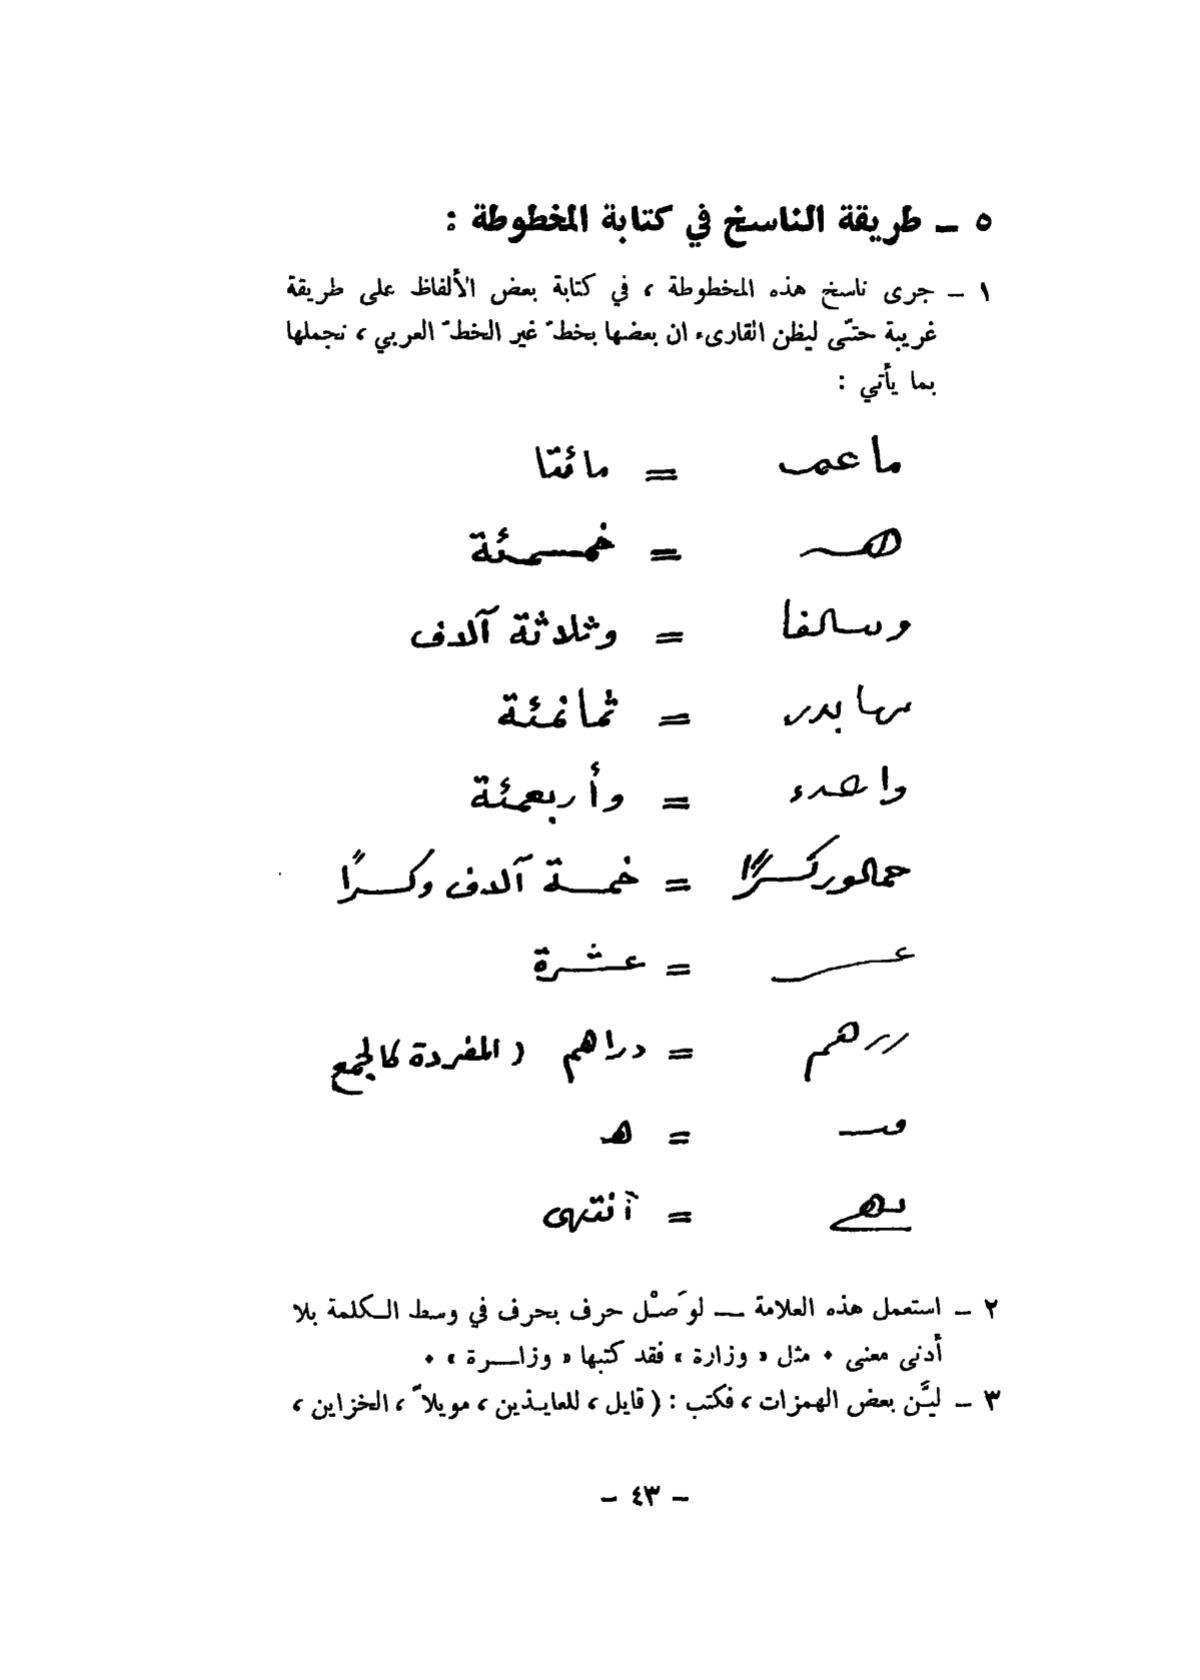 ٥ ــ طريقة الناسخ في كتابة المخطوطة :
١ ــ جرى ناسخ هذه المخطوطة ، في كتابة بعض الألفاظ على طريقة
غريبة حتّى ليظن القارىء ان بعضها بخطّ غير الخطّ العربي ، نجملها
بما يأتي :
= مائتا
= خمسمئة
= وثلاثة آلاف
= ثمانمئة
= وأربعمئة
= خمسة آلاف وكسرًا
عــر = عشرة
ررهم = دراهم ( المفردة كالجمع
= هـ
= آنتهى
٢ ــ استعمل هذه العلامة ــ لوَصْل حرف بحرف في وسط الـكلمة بلا
أدنى معنى ٠ مثل « وزارة » فقد كتبها « وزاـــرة » ٠
٣ ــ ليَّن بعض الهمزات ، فكتب : ( قايل ، للعايـذين ، مويلاً ، الخزاين ،
ــ ٤٣ ــ